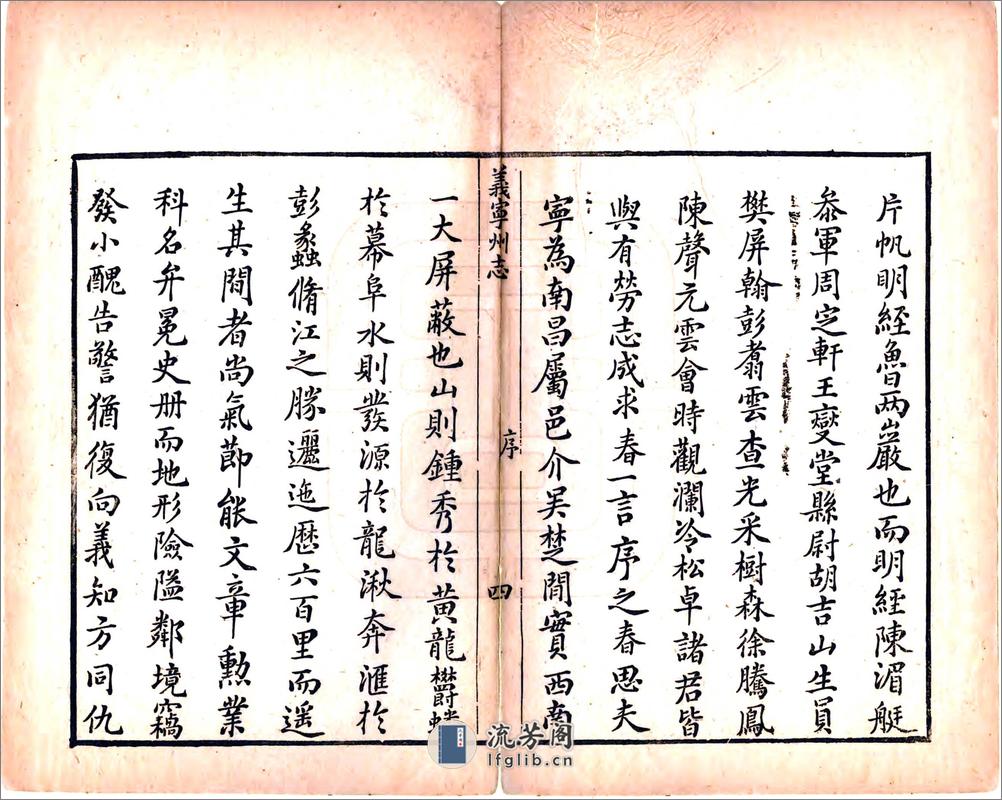 片帆明經魯两巖也而明經陳湄艇
叅軍周定軒王燮堂縣尉胡吉山生員
樊屏翰彭翥雲查光采樹森徐騰鳳
陳聲元雲會時觀瀾冷松卓諸君皆
與有勞志成求春一言序之春思夫
寧為南昌屬邑介吴楚閒實西南
義寧州志
序
四
一大屏蔽也山則鍾秀於黄龍欝蟠
於幕阜水則發源於龍湫奔滙於
彭蠡脩江之勝邐迤歴六百里而遥
生其閒者尚氣節能文章勲業
科名弁冕史册而地形險隘鄰境竊
發小醜告警猶復向義知方同仇
流芳阁
lfglib.cn